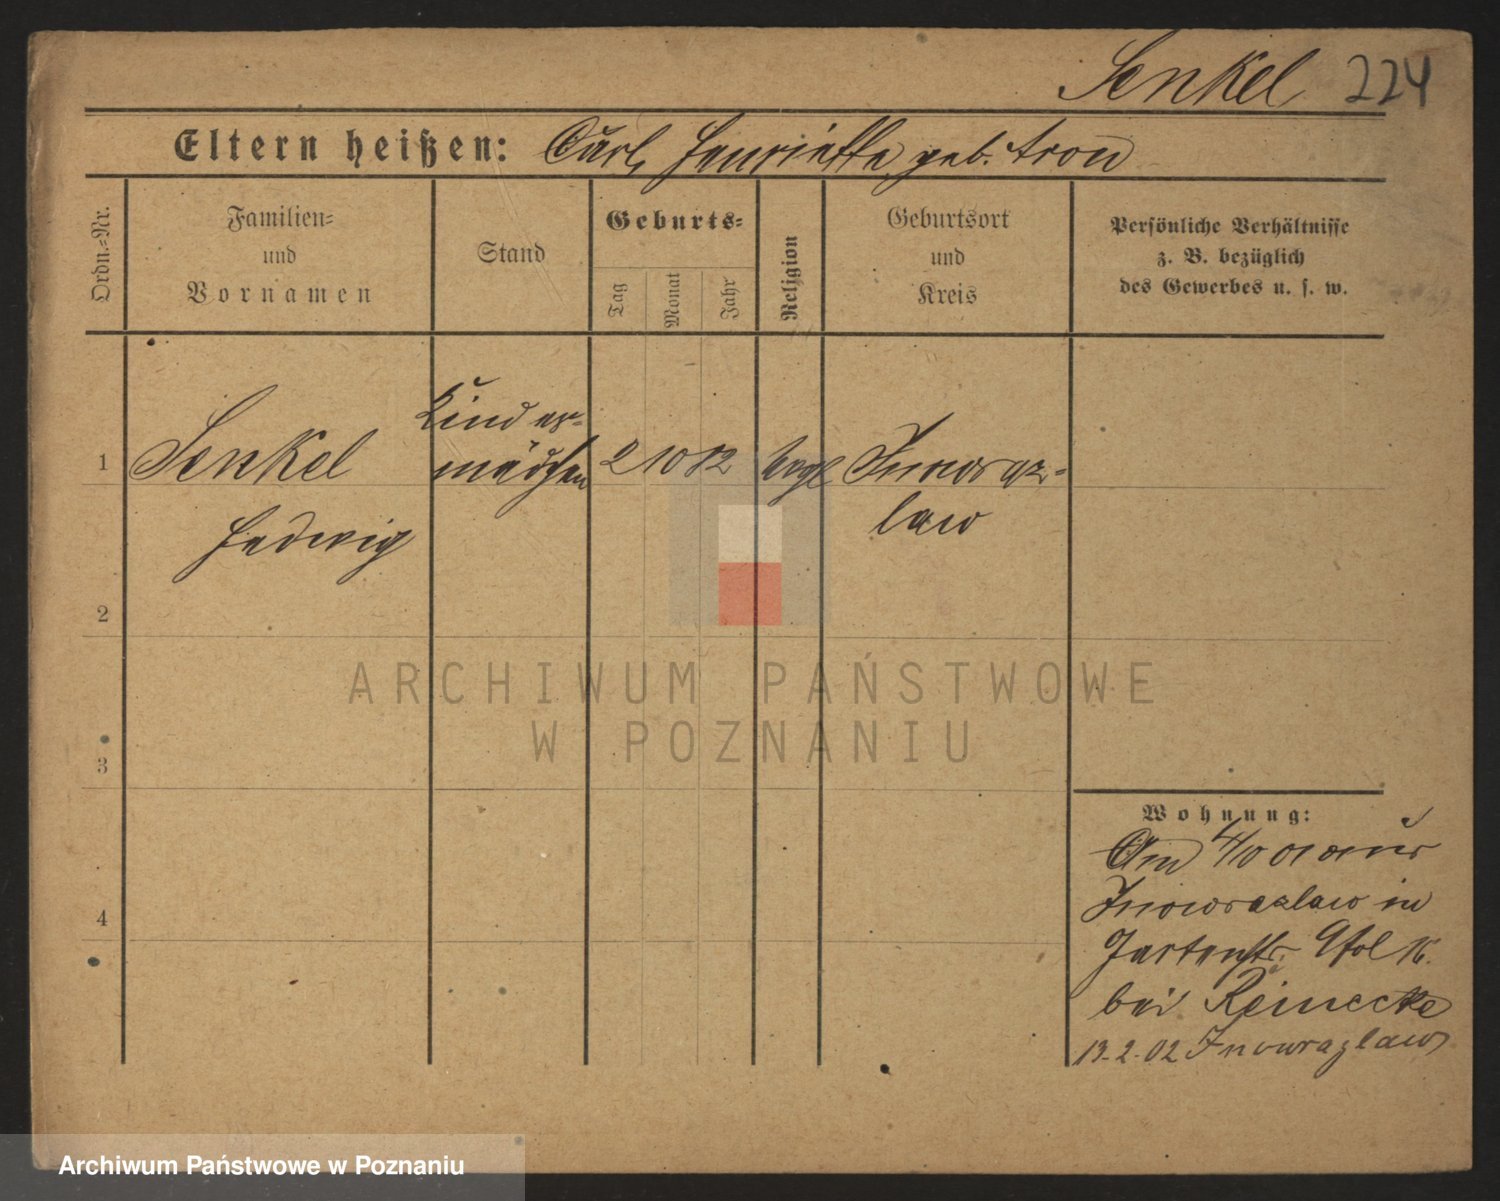 Senkel 224
Eltern heißen: Carl, Henriette, geb. Tron
Ordn.=Nr.
Familien=
und
Vornamen
Stand
Geburts=
Tag
Monat
Jahr
Religion
Geburtsort
und
Kreis
Persönliche Verhältnisse
z. B. bezüglich
des Gewerbes u. s. w.
1
Senkel
Hedwig
Kinder=
mädchen
2 10 82
evgl
Inowraz=
law
2
3
4
Wohnung:
Am 4/10 01 aus
Inowrazlaw in
Gartenstr.
bei Reinecke
13.2.02 Inowrazlaw
ARCHIWUM PAŃSTWOWE
W POZNANIU
Archiwum Państwowe w Poznaniu